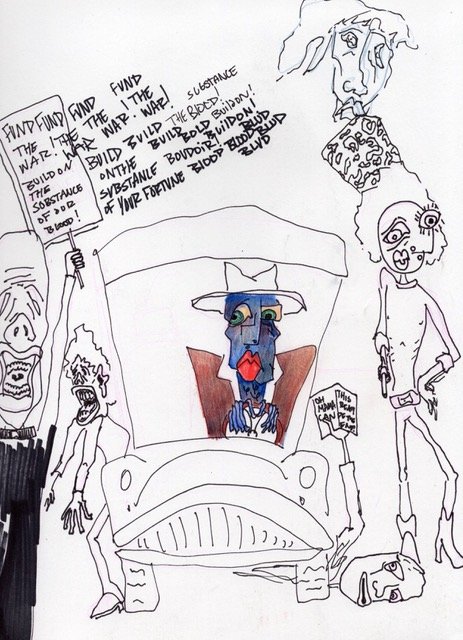 FUND FUND
THE
WAR. !
BUILD ON
THE
SUBSTANCE
OF OUR
BLOOD!
FUND FUND
THE THE ! THE
WAR WAR. WAR!
SUBSTANCE
BUILD BUILD THE BLOOD!
ON THE BUILD BOLD BUILDON!
SUBSTANCE BOUDOIR! BUILDON! BLVD
OF YOUR FORTUNE BLOOD BLOOD BLVD
BLVD
OH
MAMA
CAN
THIS
BE THE
END